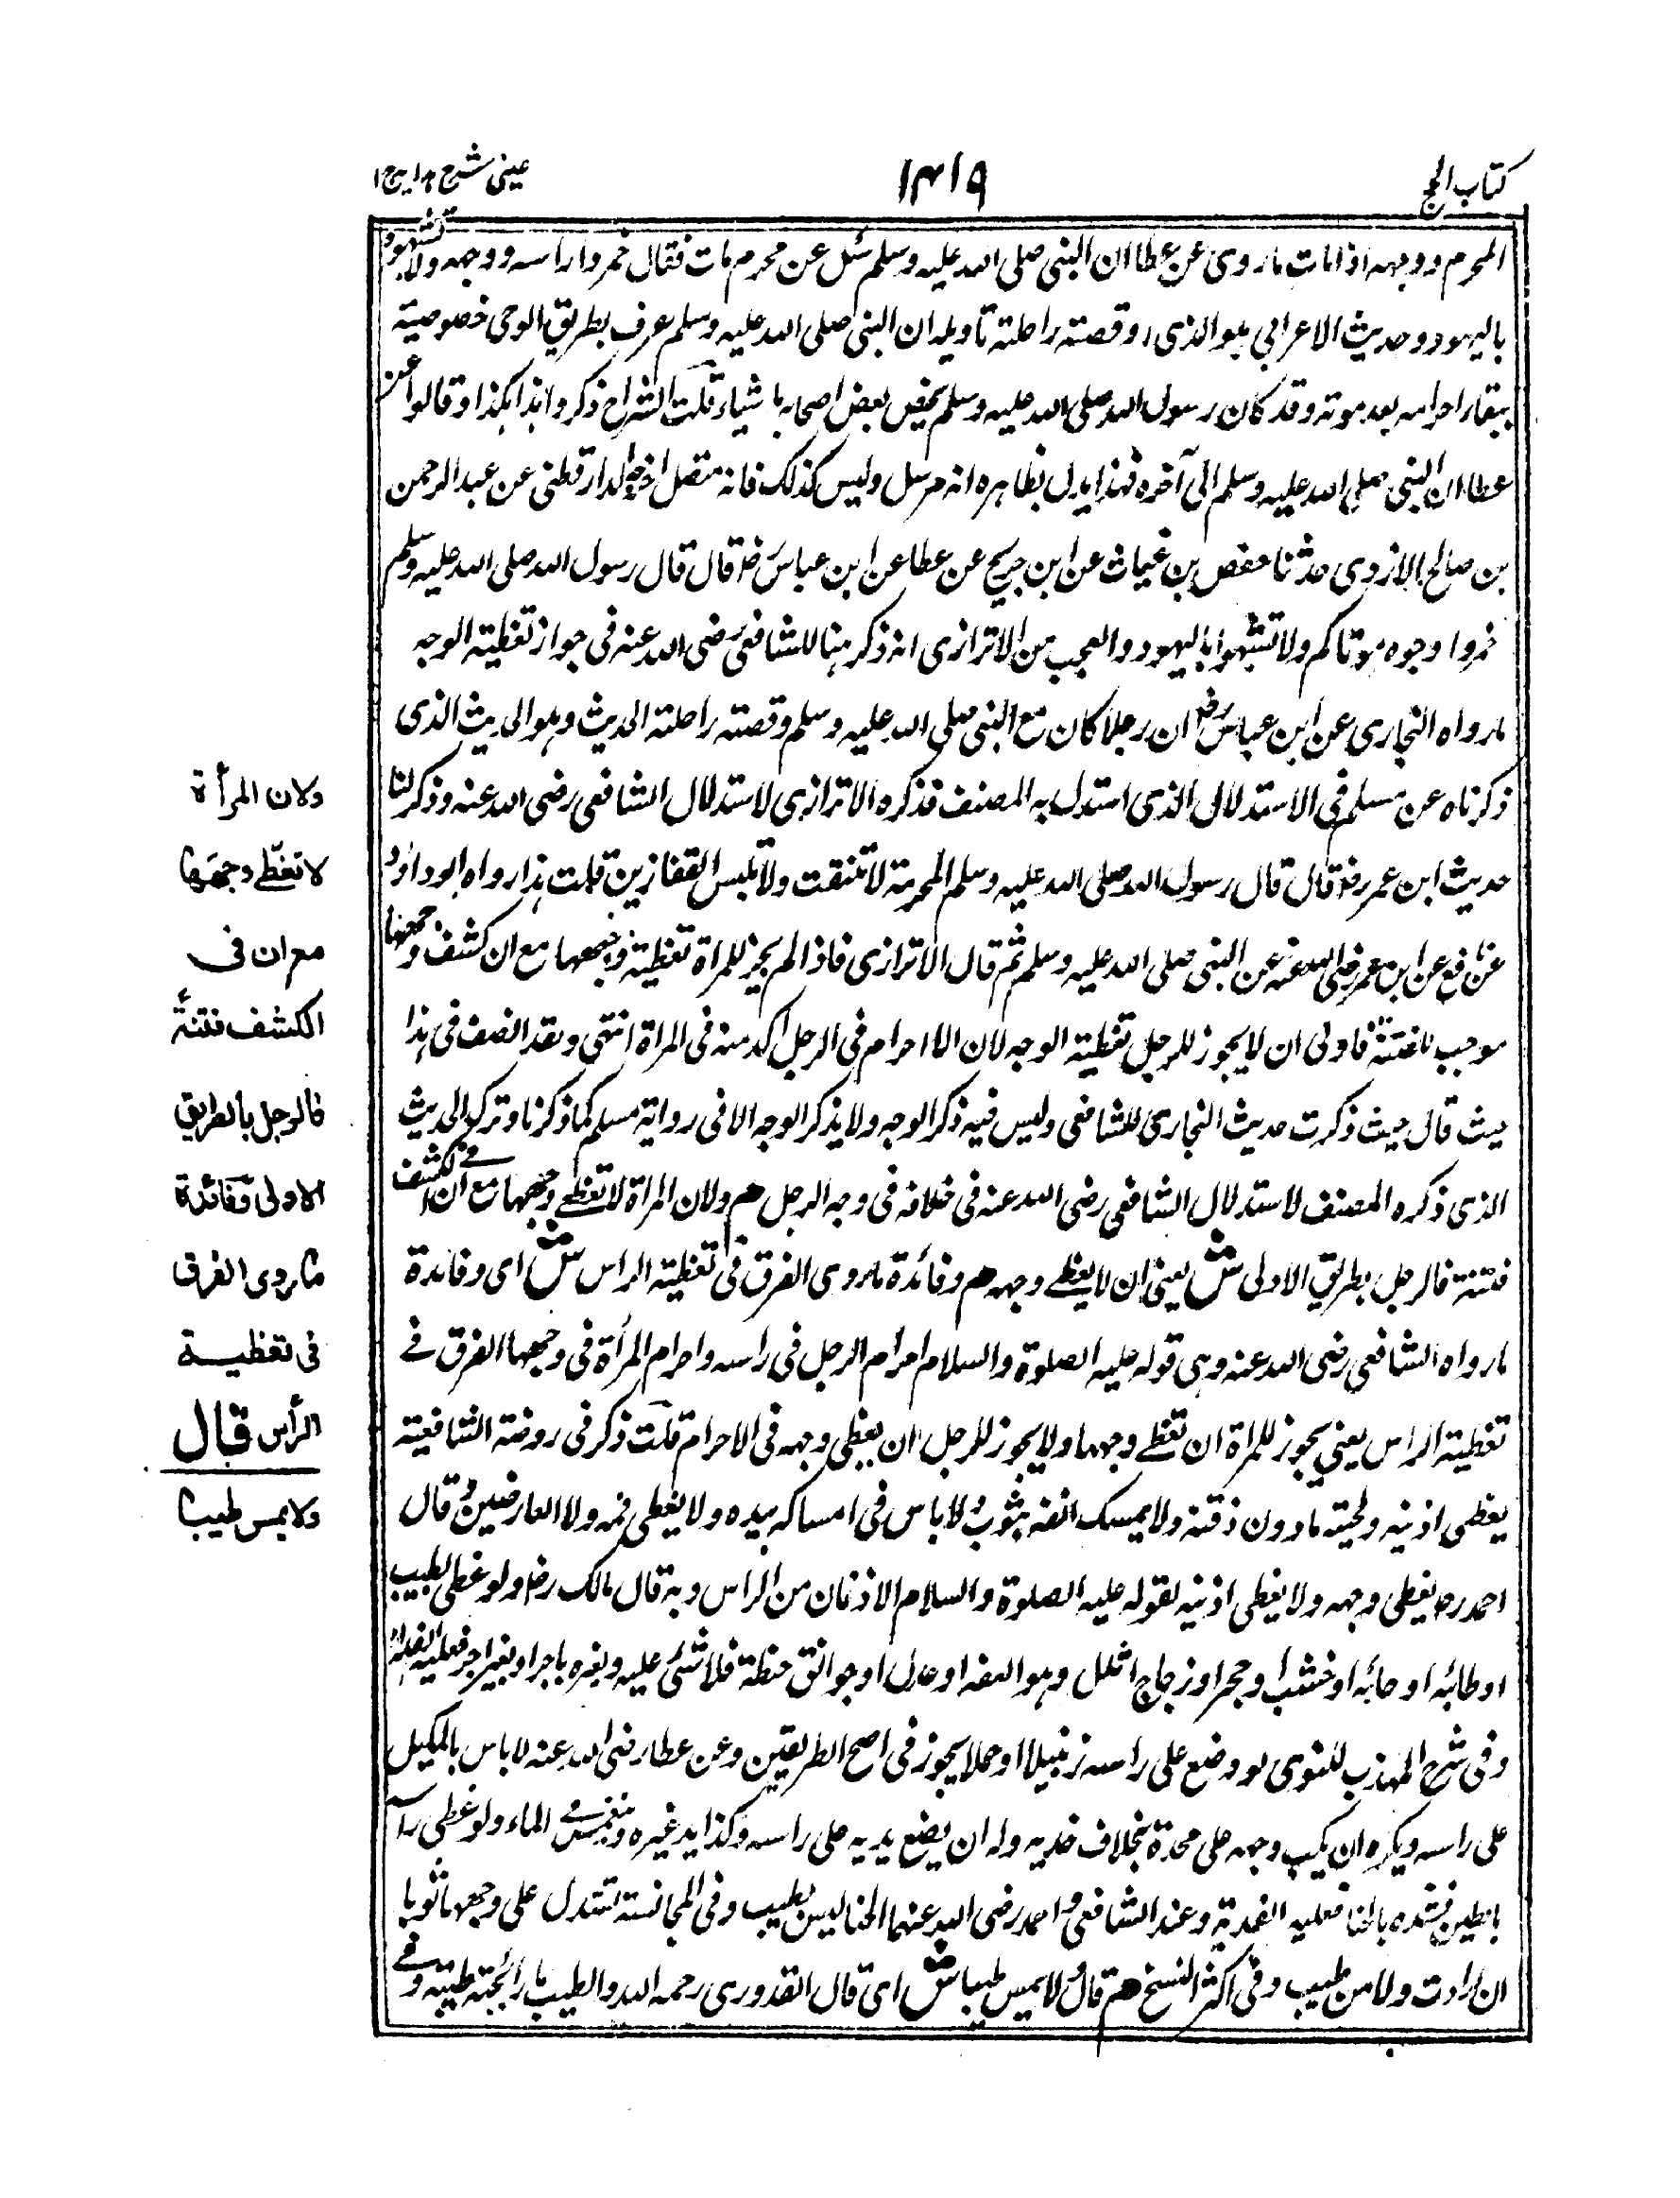 كتاب الحج
١٣١٩
عينى شرح هدايه ج١
المحرم ووجهه اذا مات ماروى عن عطا ان النبى صلى الله عليه وسلم سئل عن محرم مات فقال خمروا راسه ووجهه ولا تشبهوه
باليهود وحديث الاعرابي هو الذى وقصته راحلته تاويله ان النبى صلى الله عليه وسلم عرف بطريق الوحى خصوصيته
ببقاء احرامه بعد موته وقد كان رسول الله صلى الله عليه وسلم يخص بعض اصحابه باشياء قلت الشراح ذكروا هذا هكذا وقالوا عن
عطا ان النبى صلى الله عليه وسلم الى آخره فهذا يدل بظاهره انه مرسل وليس كذلك فانه متصل اخرجه الدارقطنى عن عبد الرحمن
بن صالح الازدى حدثنا حفص بن غياث عن ابن جريج عن عطا عن ابن عباس رض قال قال رسول الله صلى الله عليه وسلم
خمروا وجوه موتاكم ولا تشبهوا باليهود والعجب من الاترازى انه ذكر هنا للشافعى رضى الله عنه فى جواز تغطية الوجه
مارواه البخارى عن ابن عباس رض ان رجلا كان مع النبى صلى الله عليه وسلم وقصته راحلته الحديث وهو الحديث الذى
ذكرناه عن مسلم فى الاستدلال الذى استدل به المصنف فذكره الاترازى لاستدلال الشافعى رضى الله عنه وذكر لنا
حديث ابن عمر رض قال قال رسول الله صلى الله عليه وسلم المحرمة لا تنتقب ولا تلبس القفازين قلت هذا رواه ابوداؤد
عن نافع عن ابن عمر رضى الله عنه عن النبى صلى الله عليه وسلم ثم قال الاترازى فاذا لم يجز للمراة تغطية وجهها مع ان كشف وجهها
موجب للفتنة فاولى ان لا يجوز للرجل تغطية الوجه لان الاحرام فى الرجل اكد منه فى المراة انتهى وبقد انصف فى هذا
حيث قال حيث ذكرت حديث البخارى للشافعى وليس فيه ذكر الوجه ولا يذكر الوجه الا فى رواية مسلم كما ذكرنا وترك الحديث
الذى ذكره المصنف لاستدلال الشافعى رضى الله عنه فى خلافه فى وجه الرجل هم ولان المراة لا تغطے وجهها مع ان فے الكشف
فتنة فالرجل بطريق الاولى ش يعنى ان لا يغطے وجهه هم وفائدة ماروى الفرق فى تغطية الراس ش اى وفائدة
مارواه الشافعى رضى الله عنه وهى قوله عليه الصلوة والسلام احرام الرجل فى راسه واحرام المرأة فى وجهها الفرق فے
تغطية الراس يعنى يجوز للمراة ان تغطے وجهها ولا يجوز للرجل ان يغطى وجهه فى الاحرام قلت ذكر فى روضة الشافعية
يغطى اذنيه ولحيته مادون ذقنه ولا يمسك انفه بثوب ولا باس فى امساكه بيده ولا يغطى فمه ولا العارضين وقال
احمد رح يغطى وجهه ولا يغطى اذنيه لقوله عليه الصلوة والسلام الاذنان من الراس وبه قال مالك رض ولو غطى لطبيب
او خشب او حجر او زجاج فلا شئ عليه وبغيره باجر او بغير اجر فعليه الفداء
وفى شرح المهذب للنووى لو وضع على راسه زنبيلا او حملا يجوز فى اصح الطريقين وعن عطا رضى الله عنه لا باس بالمكيل
على راسه ويكره ان يكب وجهه على مخدة بخلاف خديه وله ان يضع يديه على راسه وكذا يد غيره وينغمس فے الماء ولو غطى راسه
بالطين فشده بالحنا فعليه الفدية وعند الشافعى واحمد رضى الله عنهما الحنا ليس بطيب وفى المجانسة تسدل على وجهها ثوبا
ان ارادت ولا من طيب وفى اكثر النسخ هم قال ولا يمس طيبا ش اى قال القدورى رحمه الله والطيب ما رائحته طيبة وفے
ولان المرأة
لا تغطے وجهها
مع ان فى
الكشف فتنةً
فالرجل بالطريق
الاولى وفائدة
ما روى الفرق
فى تغطية
الرأس قال
ولا يمس طيبا